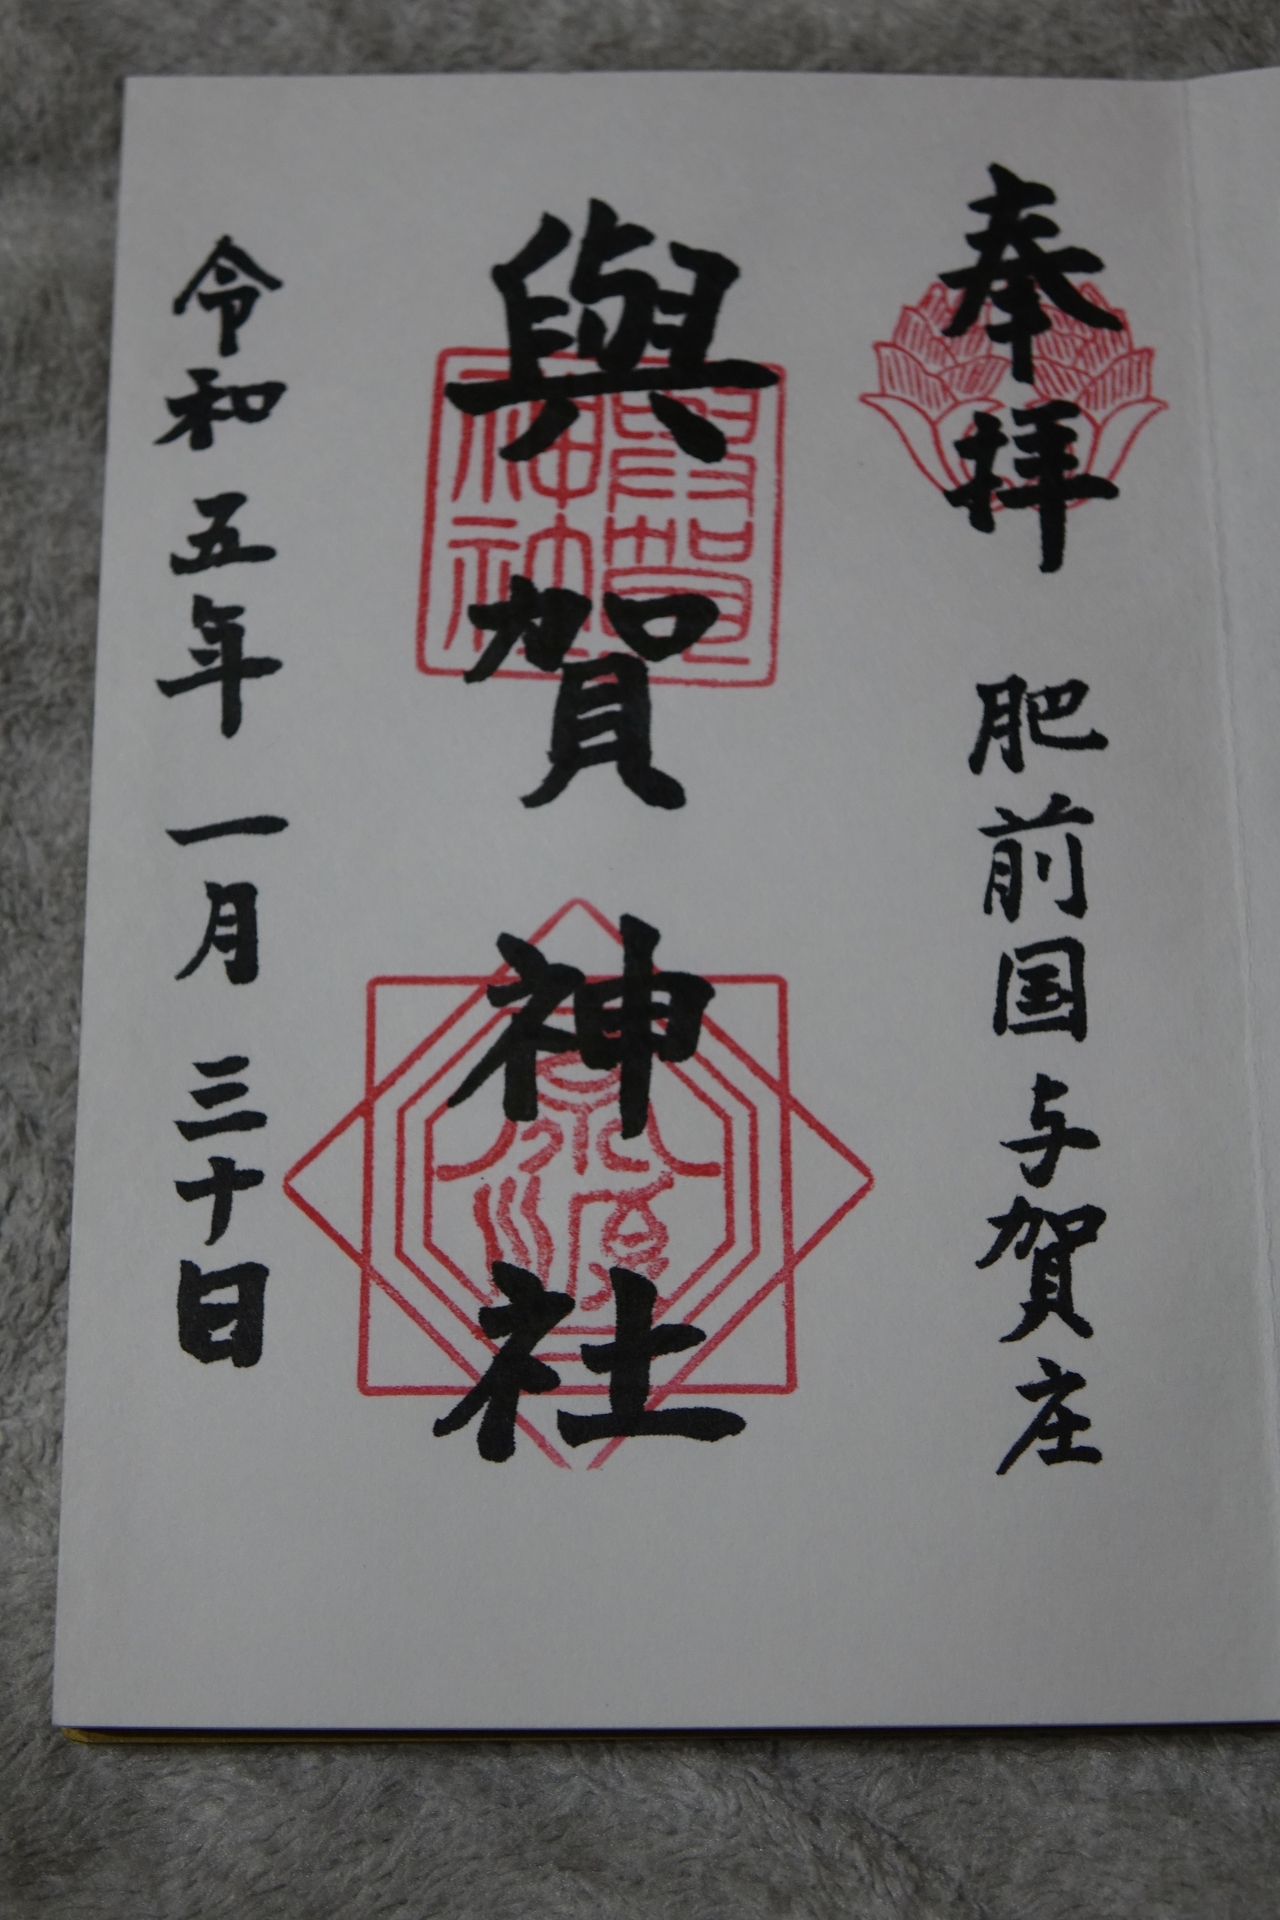 奉拝 肥前国与賀庄
與賀神社
令和五年一月三十日